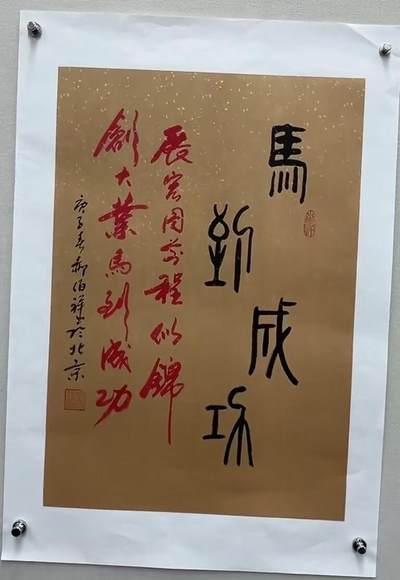 馬到成功
展宏图前程似錦
創大業馬到成功
庚子春郝伯祥於北京